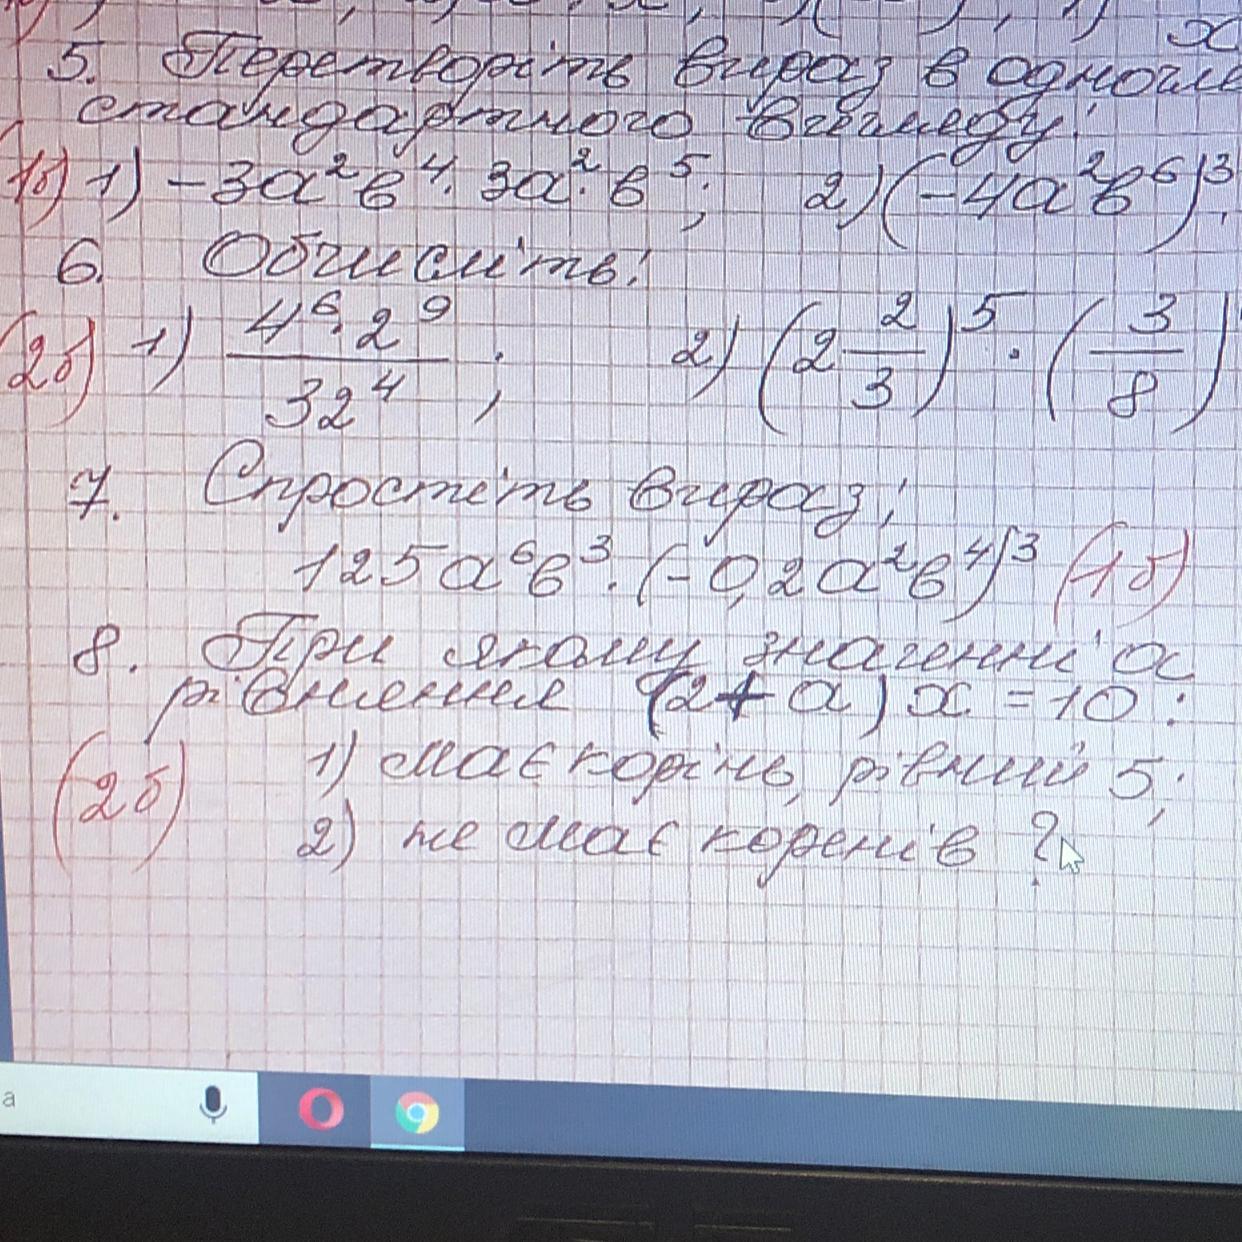 5. Перетворіть вираз в одночле
стандартного вигляду:
1б) 1) -3a²b⁴·3a²·b⁵; 2) (-4a²b⁶)³.
6. Обчисліть:
(2б) 1) 4⁶·2⁹ / 32⁴ ; 2) (2 2/3)⁵ · (3/8)
7. Спростіть вираз:
125a⁶b³·(-0,2a²b⁴)³ (1б)
8. При якому значенні a
рівняння (2+a)x=10:
(2б) 1) має корінь, рівний 5;
2) не має коренів?
a